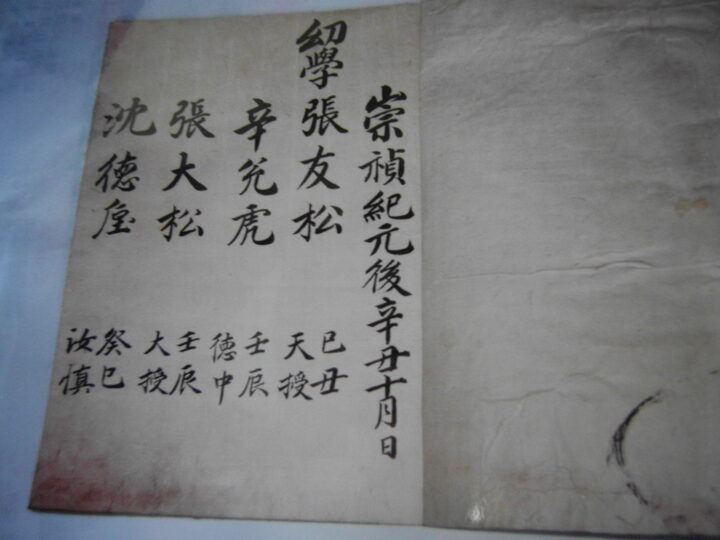 崇禎紀元後辛丑十月日
幼學張友松 己丑 天授
辛允虎 壬辰 德中
張大松 壬辰 大授
沈德 癸巳 汝慎